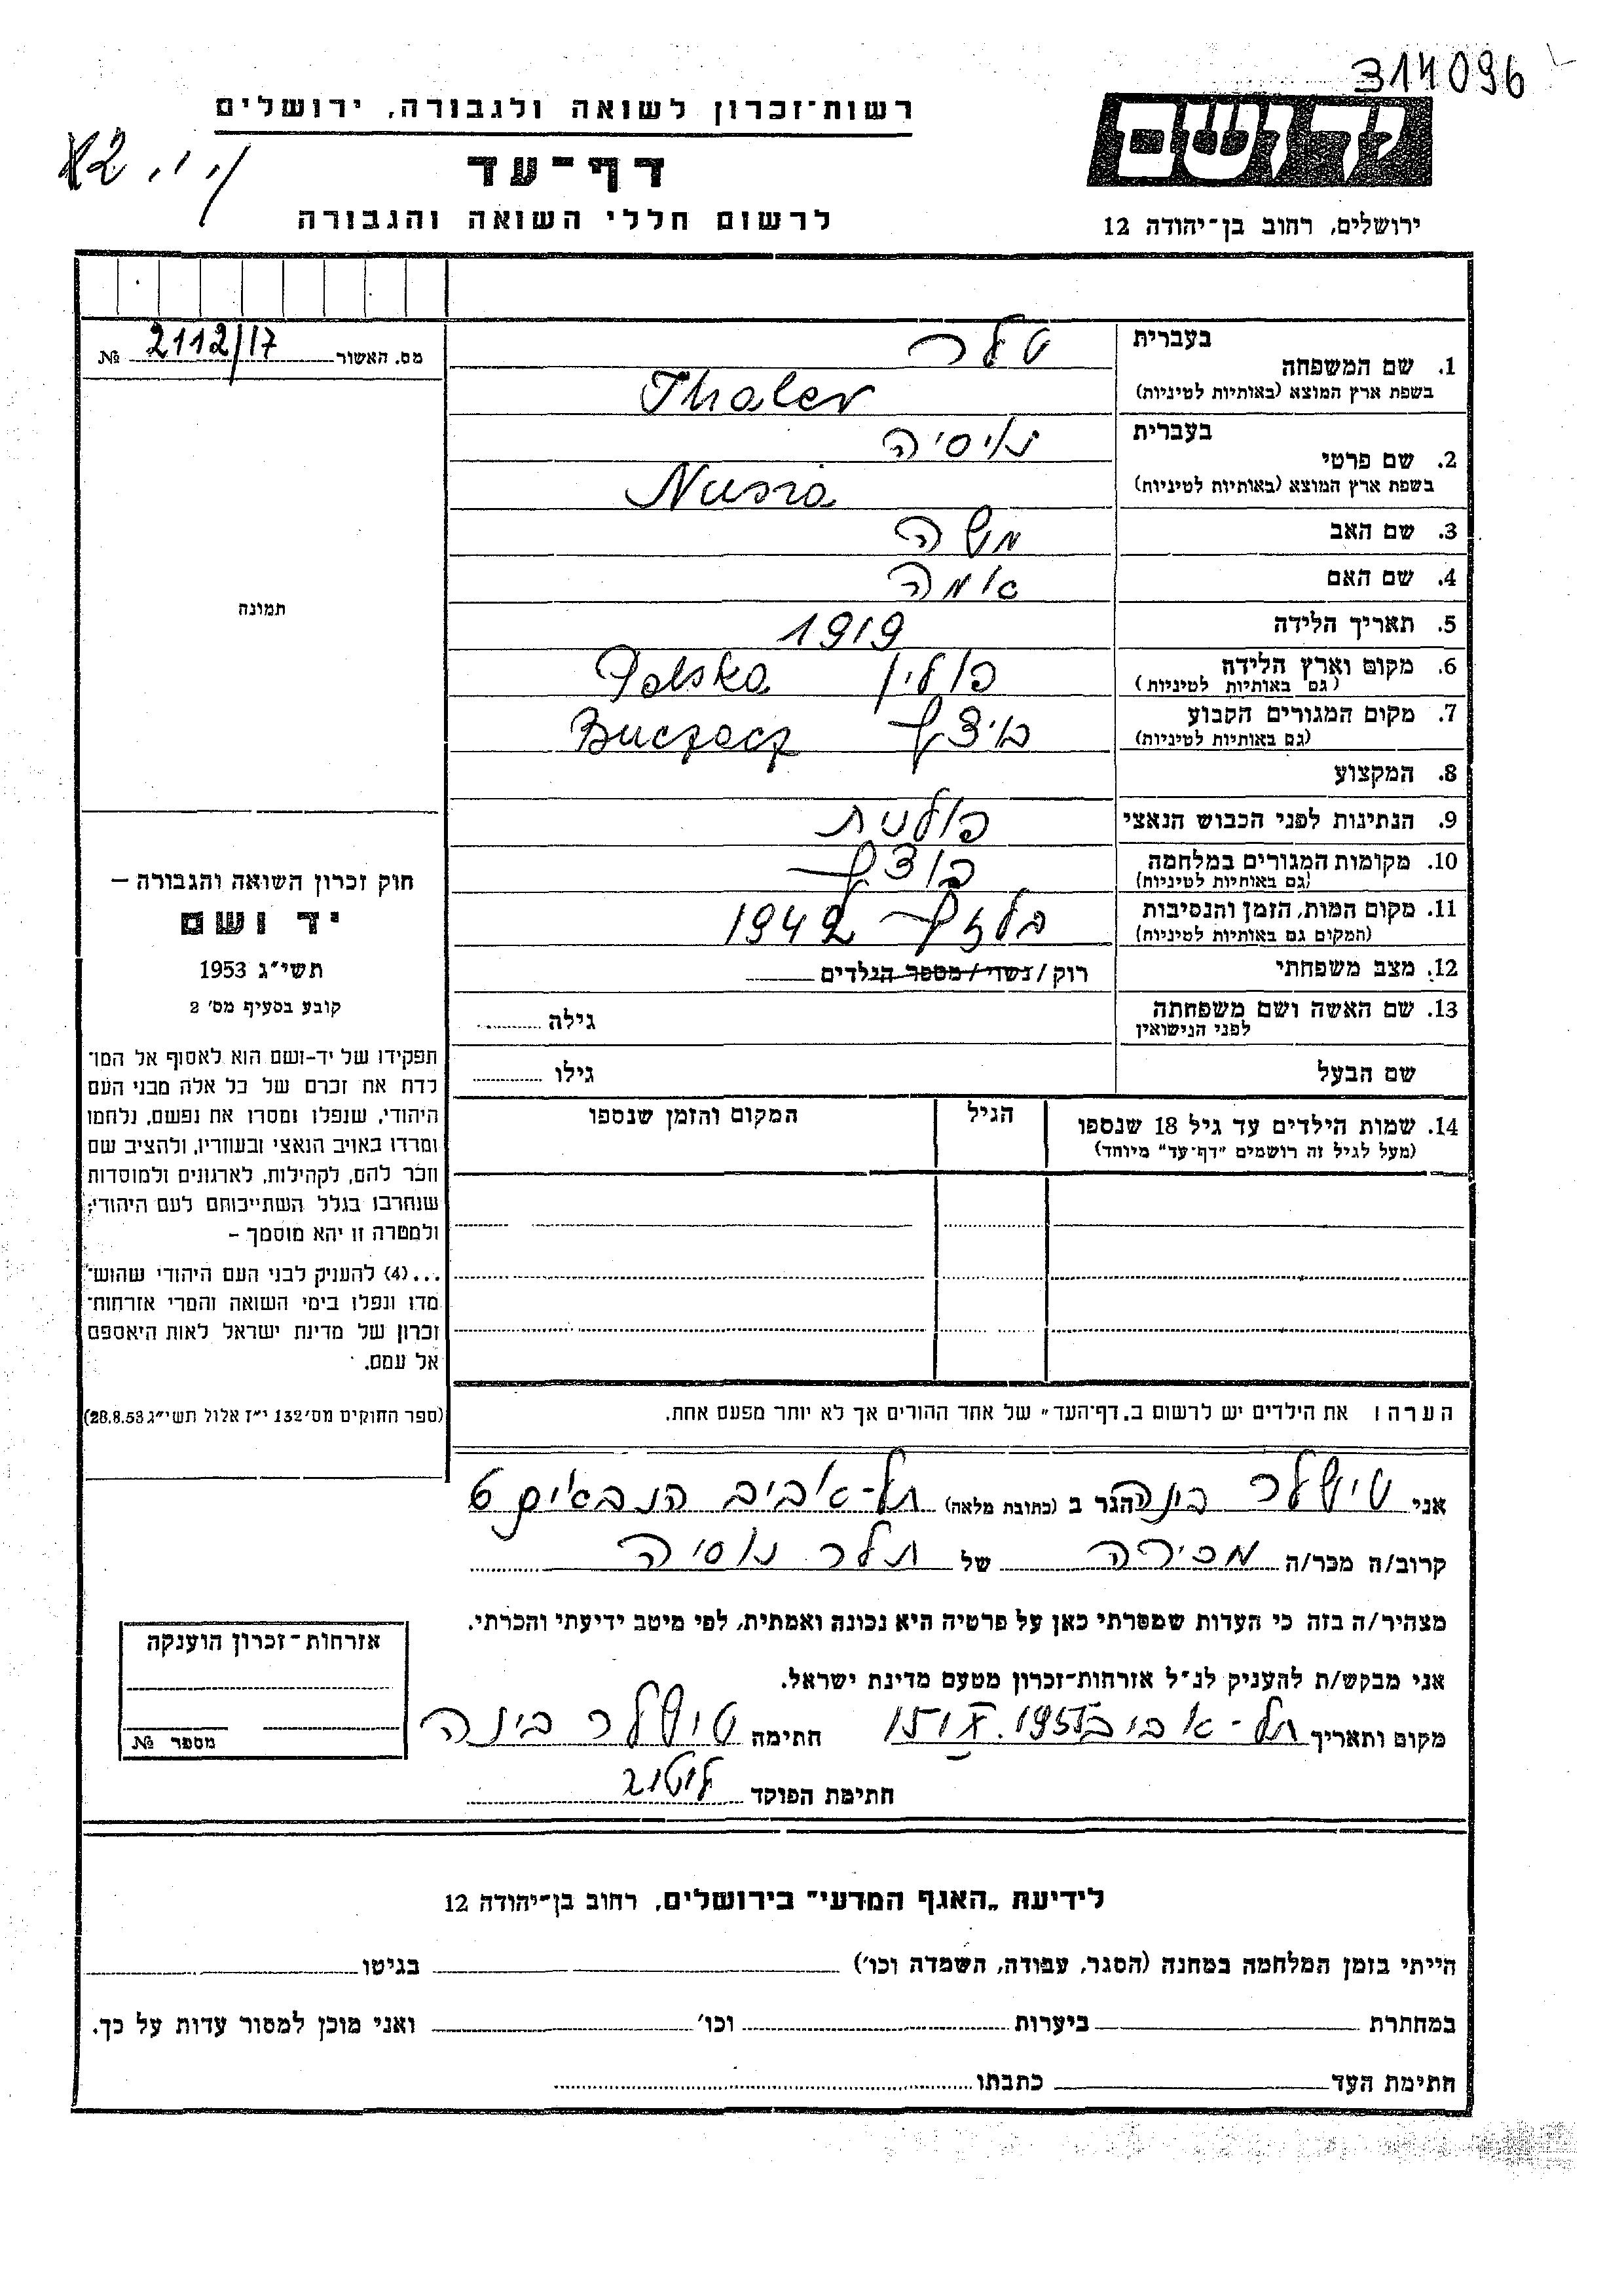 314096
רשות-זכרון לשואה ולגבורה, ירושלים
יד ושם
דף-עד
לרשום חללי השואה והגבורה
ירושלים, רחוב בן-יהודה 12
מס. האשור 2112/17 №
1. שם המשפחה
בעברית טלר
בשפת ארץ המוצא (באותיות לטיניות) Thaler
2. שם פרטי
בעברית נוסיה
בשפת ארץ המוצא (באותיות לטיניות) Nusia
3. שם האב משה
4. שם האם
5. תאריך הלידה 1919
6. מקום וארץ הלידה פולין Polska
(גם באותיות לטיניות)
7. מקום המגורים הקבוע Buczacz
(גם באותיות לטיניות)
8. המקצוע
9. הנתינות לפני הכבוש הנאצי פולנית
10. מקומות המגורים במלחמה
(גם באותיות לטיניות)
11. מקום המות, הזמן והנסיבות 1942
(המקום גם באותיות לטיניות)
12. מצב משפחתי רוק / נשוי / מספר הילדים
13. שם האשה ושם משפחתה גילה
לפני הנישואין
שם הבעל גילו
14. שמות הילדים עד גיל 18 שנספו הגיל המקום והזמן שנספו
(מעל לגיל זה רושמים "דף-עד" מיוחד)
הערה: את הילדים יש לרשום ב"דף-העד" של אחד ההורים אך לא יותר מפעם אחת.
תמונה
חוק זכרון השואה והגבורה –
יד ושם
תשי"ג 1953
קובע בסעיף מס' 2
תפקידו של יד-ושם הוא לאסוף אל המו-
לדת את זכרם של כל אלה מבני העם
היהודי, שנפלו ומסרו את נפשם, נלחמו
ומרדו באויב הנאצי ובעוזריו, ולהציב שם
וזכר להם, לקהילות, לארגונים ולמוסדות
שנחרבו בגלל השתייכותם לעם היהודי;
ולמטרה זו יהא מוסמך –
...(4) להעניק לבני העם היהודי שהוש-
מדו ונפלו בימי השואה והמרי אזרחות-
זכרון של מדינת ישראל לאות היאספם
אל עמם.
(ספר החוקים מס' 132 י"ז אלול תשי"ג 28.8.53)
אני טישלר בינה הגר ב (כתובת מלאה) תל-אביב הנביאים 6
קרוב/ה מכר/ה מכירה של תלר נוסיה
מצהיר/ה בזה כי העדות שמסרתי כאן על פרטיה היא נכונה ואמתית, לפי מיטב ידיעתי והכרתי.
אני מבקש/ת להעניק לנ"ל אזרחות-זכרון מטעם מדינת ישראל.
מקום ותאריך תל-אביב חתימה טישלר בינה
חתימת הפוקד
אזרחות-זכרון הוענקה
מספר №
לידיעת "האגף המדעי" בירושלים, רחוב בן-יהודה 12
הייתי בזמן המלחמה במחנה (הסגר, עבודה, השמדה וכו') בגיטו
במחתרת ביערות וכו' ואני מוכן למסור עדות על כך.
חתימת העד כתבתו